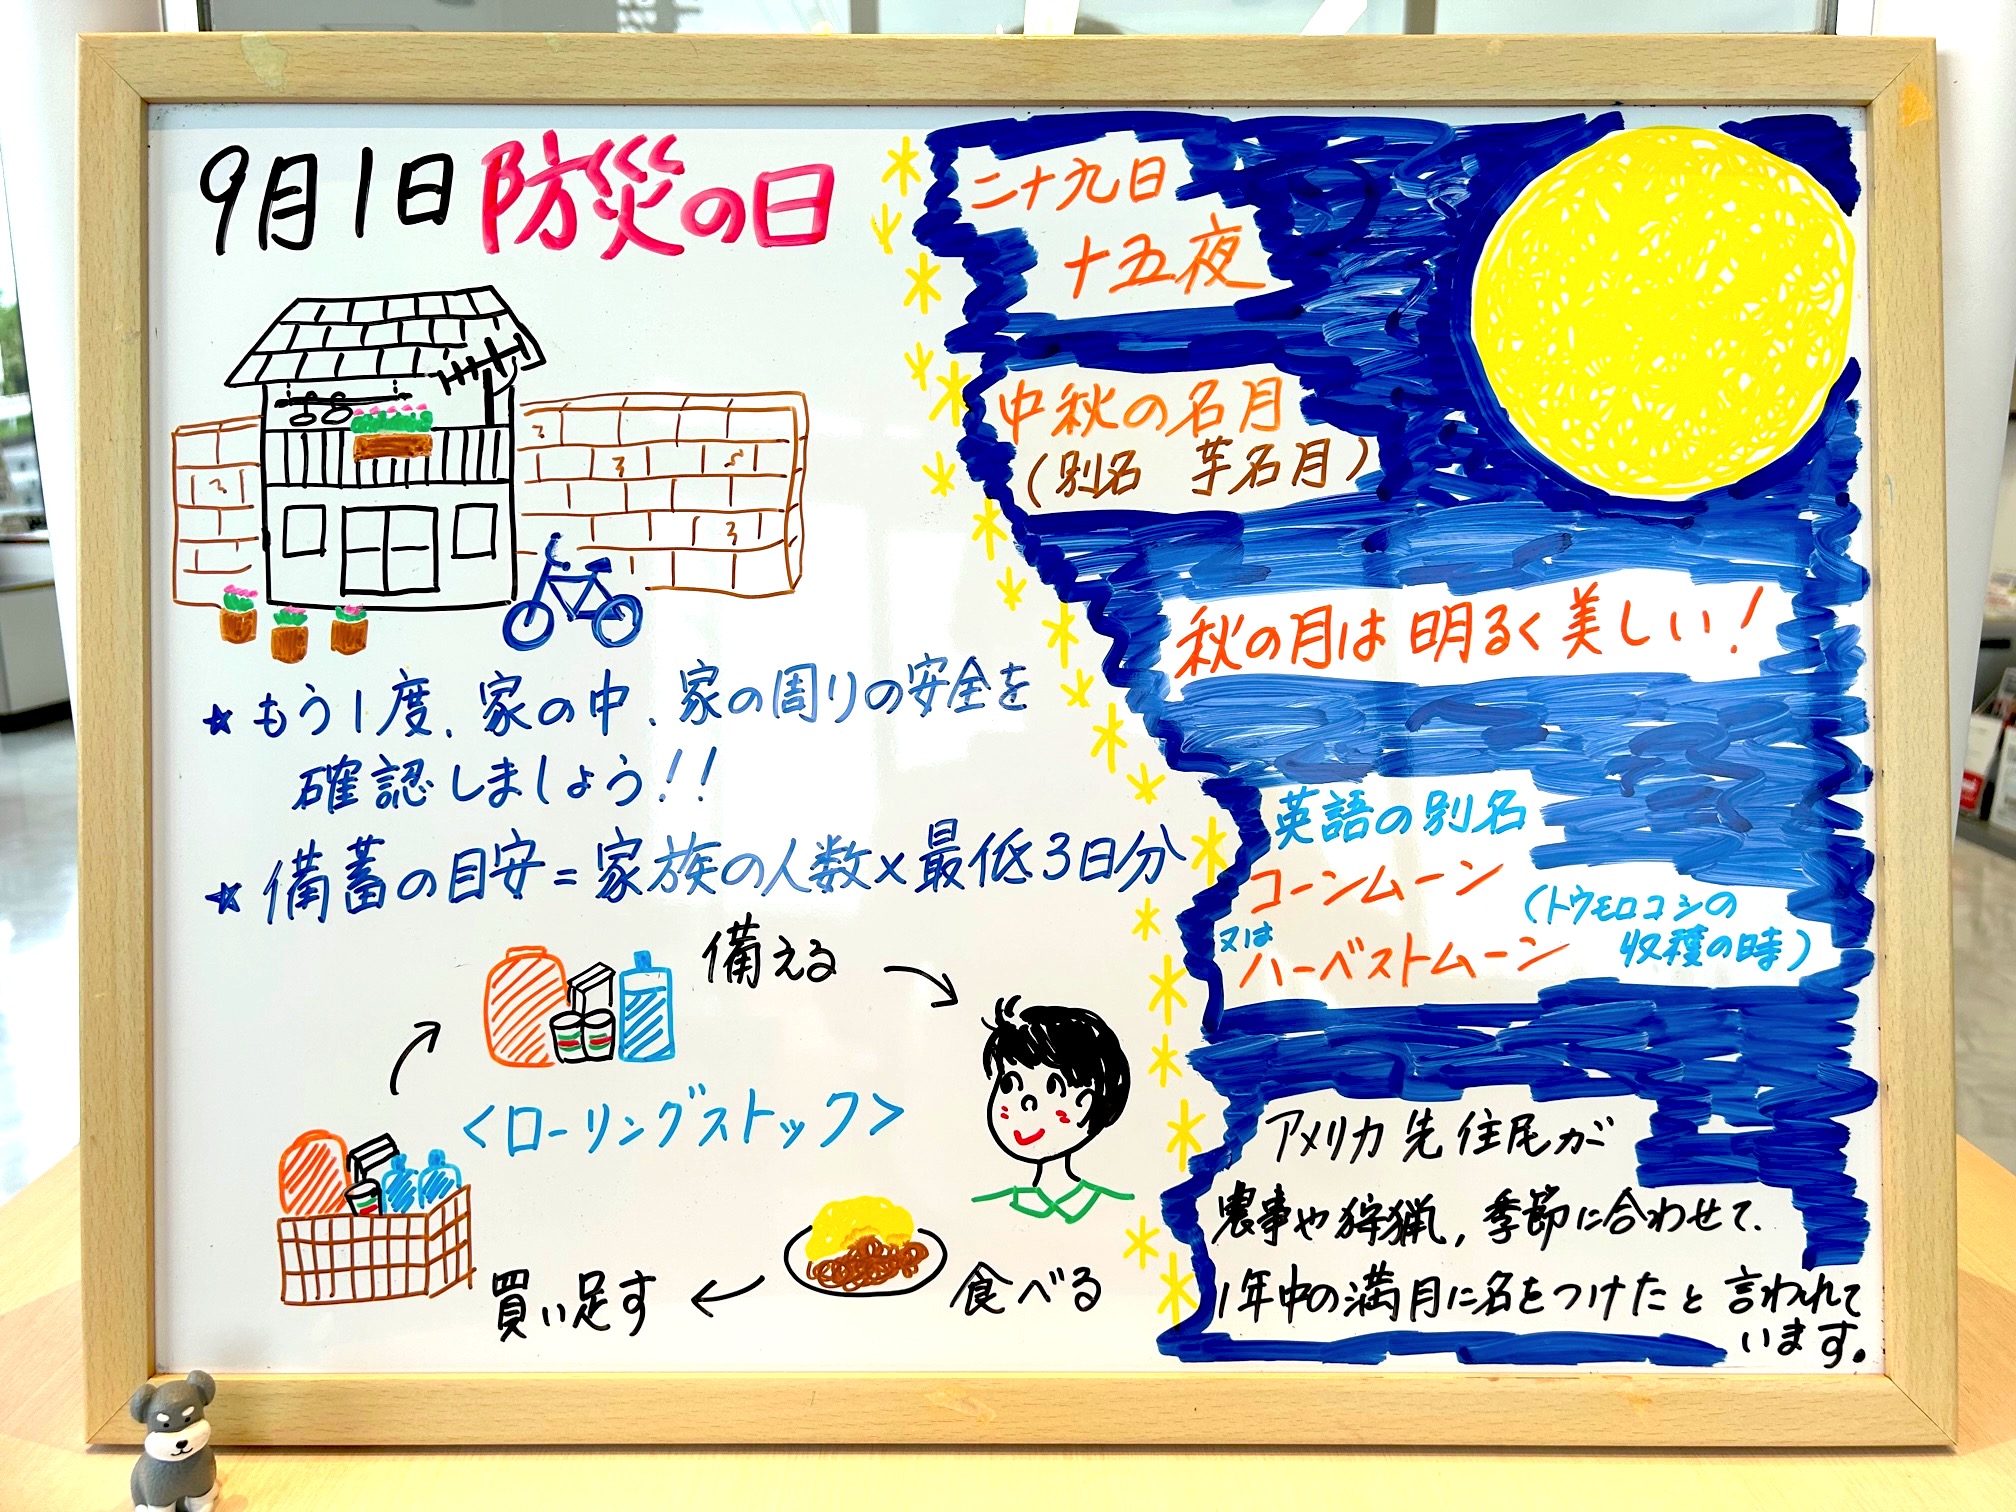 9月1日 防災の日
★もう1度、家の中、家の周りの安全を
確認しましょう!!
★備蓄の目安=家族の人数×最低3日分
備える
<ローリングストック>
買い足す
食べる
二十九日
十五夜
中秋の名月
(別名 芋名月)
秋の月は明るく美しい!
英語の別名
コーンムーン
(トウモロコシの
収穫の時)
又は
ハーベストムーン
アメリカ先住民が
農事や狩猟,季節に合わせて、
1年中の満月に名をつけたと言われて
います。